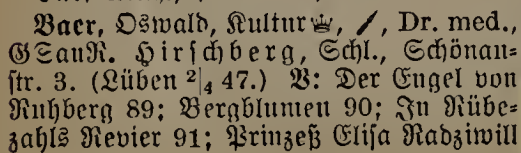 Baer, Oswald, Kultur♕, /, Dr. med.,
GSanR. Hirschberg, Schl., Schönau-
str. 3. (Lüben 2|4 47.) V: Der Engel von
Ruhberg 89; Bergblumen 90; In Rübe-
zahls Revier 91; Prinzeß Elisa Radziwill